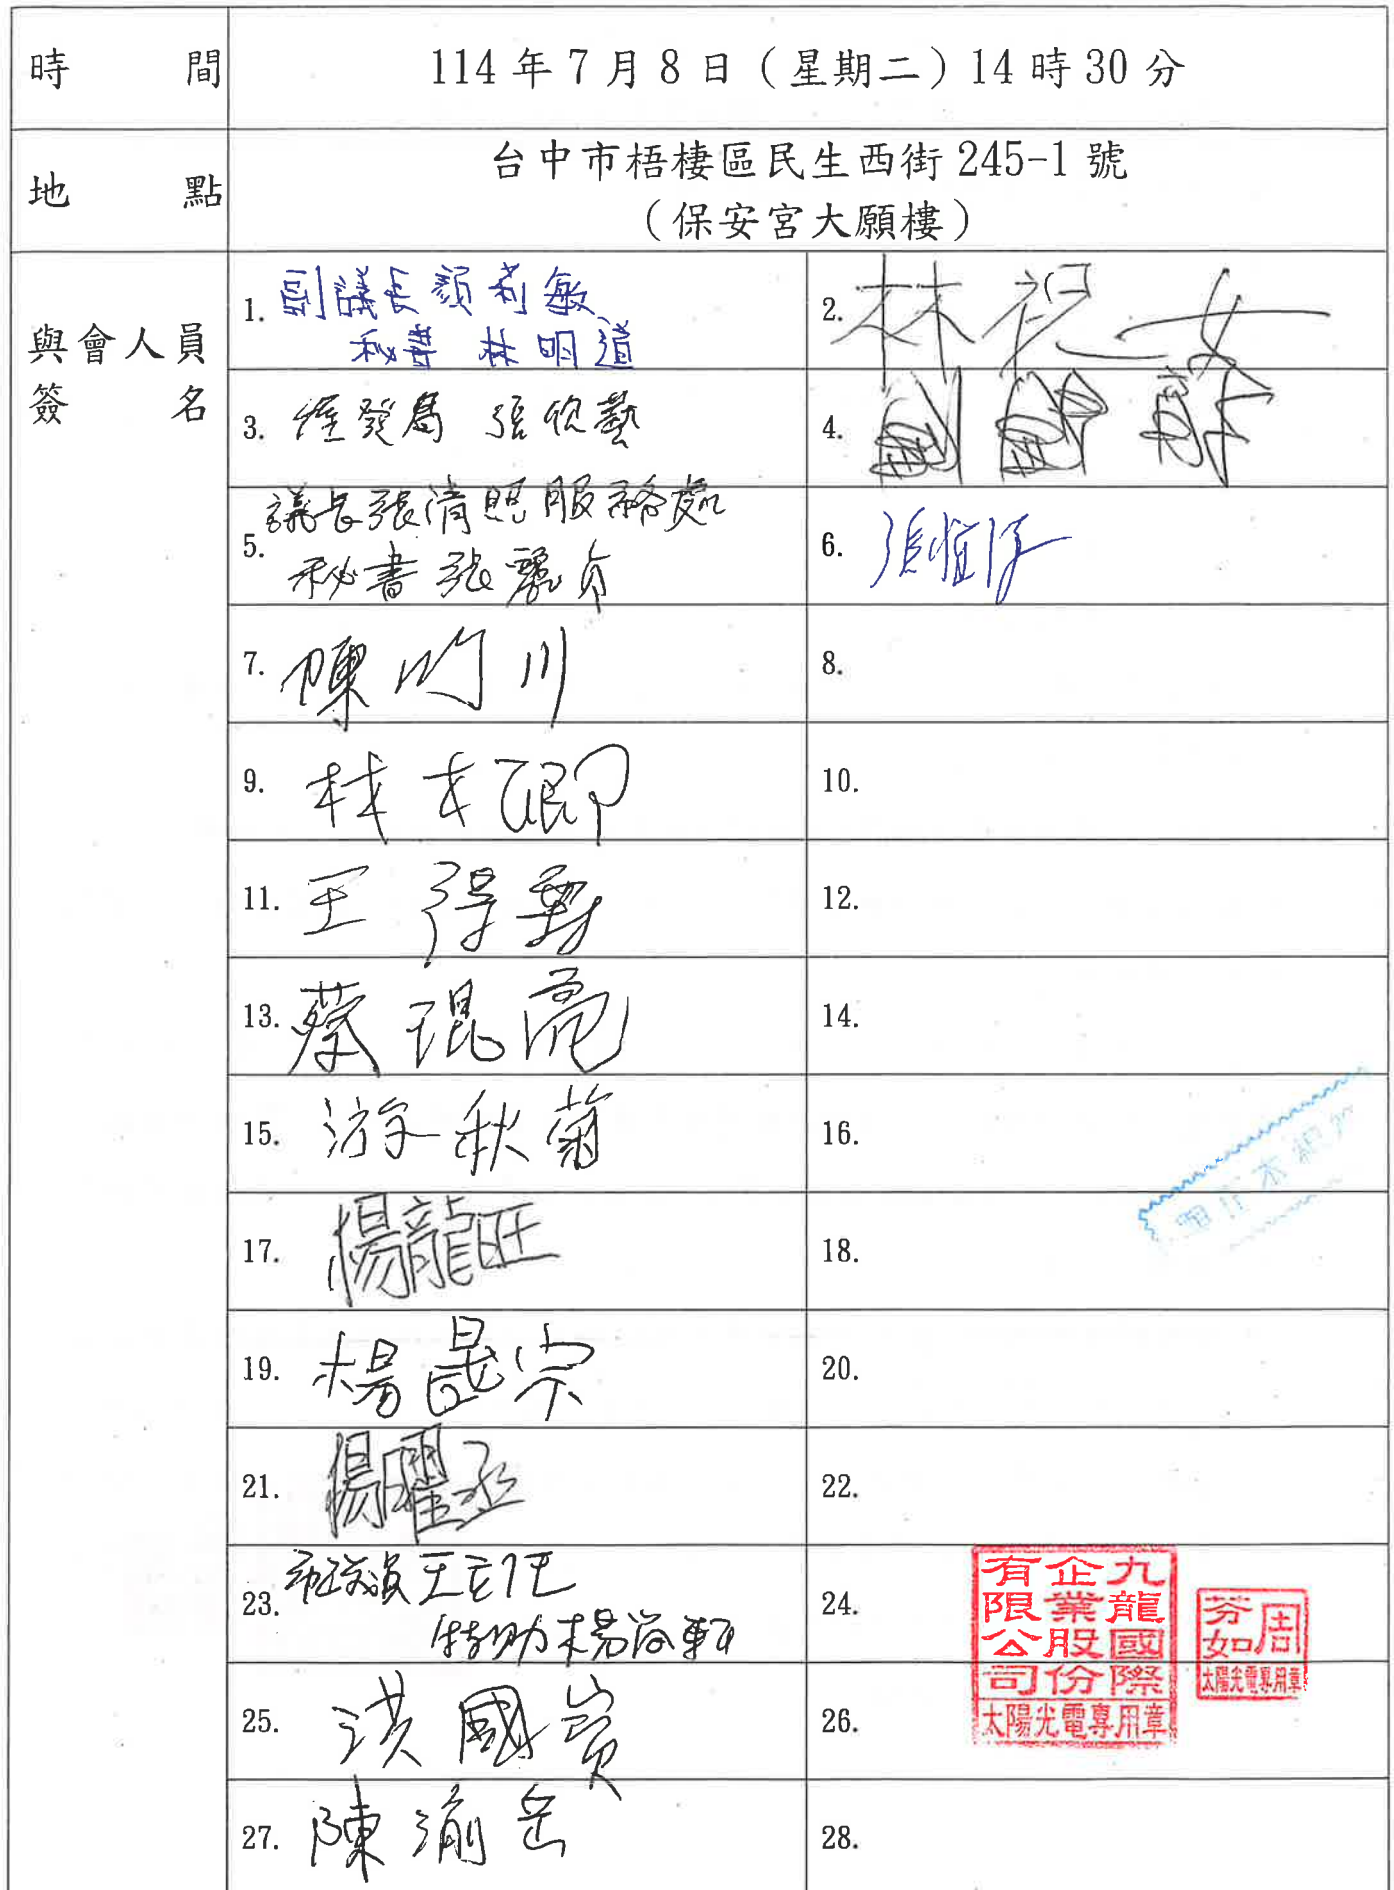 時間 114年7月8日（星期二）14時30分
地點 台中市梧棲區民生西街245-1號
（保安宮大願樓）
與會人員
簽名
1. 副議長顏莉敏
秘書 林明道
2. 林祝女
3. 經發局 張欣藝
4.
5. 議長張清照服務處
秘書張麗貞
6.
7. 陳昀川
8.
9. 林才卿
10.
11. 王得勳
12.
13. 蔡琨亮
14.
15. 游秋菊
16.
17. 楊龍旺
18.
19. 楊晟宗
20.
21. 楊曜丞
22.
23. 市議員王立任
特助楊
24.
25. 洪國賓
26.
27. 陳渝岳
28.
九龍國際
企業股份
有限公司
太陽光電專用章
周芬如
太陽光電專用章